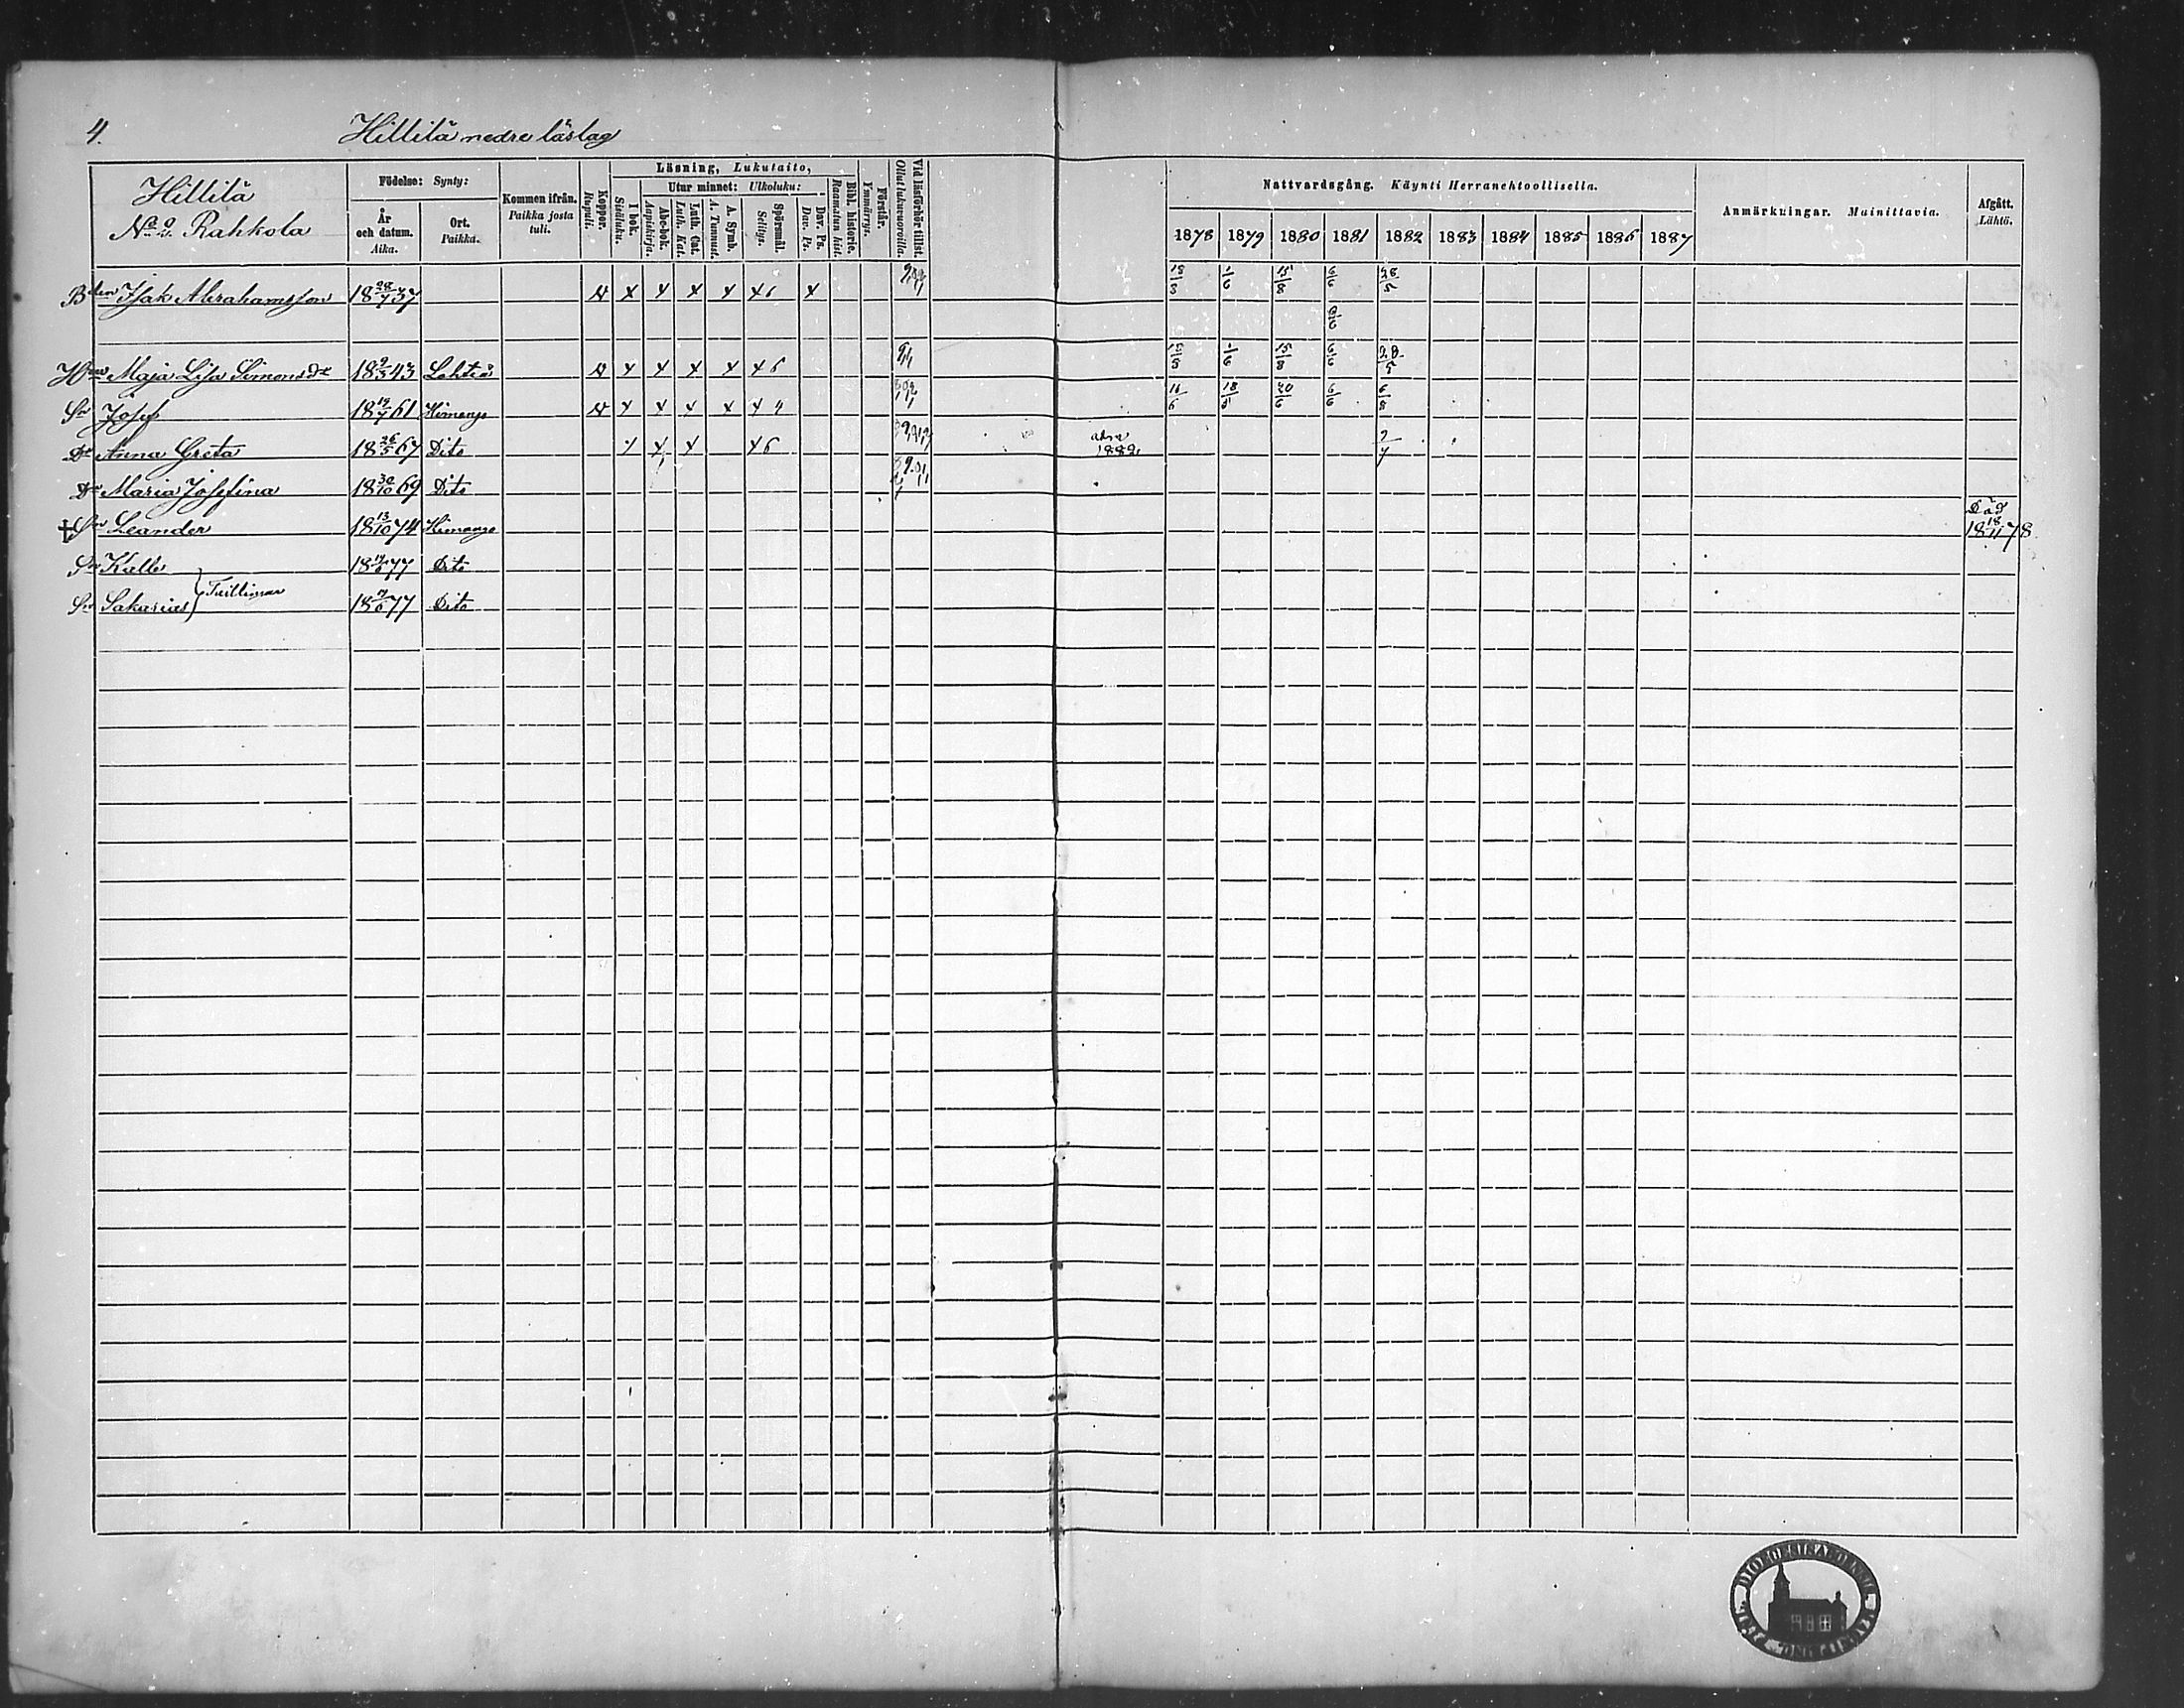 4.
Hillilä nedre läslag
Hillilä
No 2. Rahkola
Födelse: Synty:
År och datum. Aika.
Ort. Paikka.
Kommen ifrån. Paikka josta tuli.
Koppor. Rupuli.
Läsning, Lukutaito,
I bok. Sisäluku.
Utur minnet: Ulkoluku:
Abc-bok. Aapiskirja.
Luth. Cat. Luth. Kat.
A. Symb. A. Tunnust.
Spörsmål. Selitys.
Dav. Ps. Dav. Ps.
Bibl. historie. Raamatun hist.
Förstår. Ymmärrys.
Vid läsförhör tillst. Ollut lukuvuoroilla.
Nattvardsgång. Käynti Herranehtoollisella.
1878 1879 1880 1881 1882 1883 1884 1885 1886 1887
Anmärkningar. Muinittavia.
Afgått. Lähtö.
Bden Isak Abrahamsson 18 28/7 37 x x x x x x6 x 1/6 15/8 6/6 28/5
Hru Maja Lisa Simonsdr 18 9/3 43 Lohteå x x x x x x6 1/6 15/8 6/6 28/5
Sn Josef 18 19/7 61 Himango x x x x x x4 16/6 20/6 6/6
Dr Anna Greta 18 26/5 67 Dito x x x x6 1882
Dr Maria Josefina 18 30/10 69 Dito
† Sn Leander 18 13/10 74 Himango Död 18 18/11 78
Sn Kalle 77 Dito
Tvillingar
Sn Sakarias 77 Dito